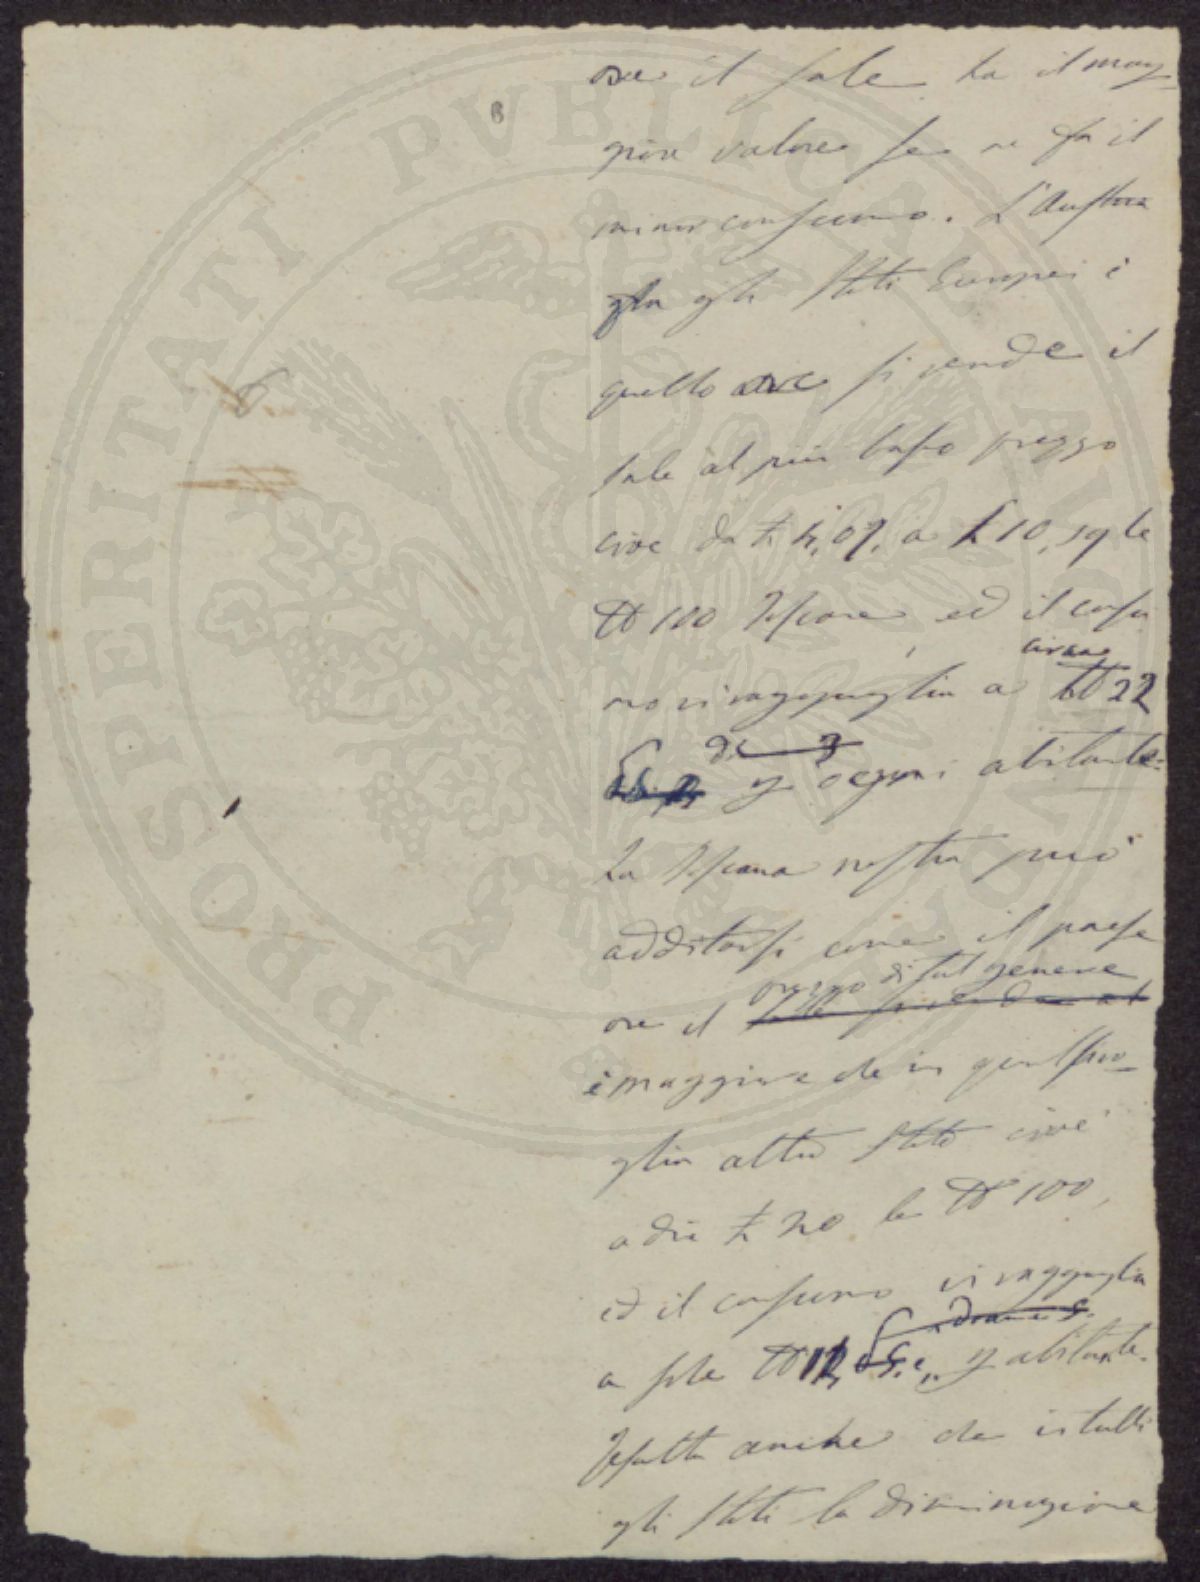 6
ove il sale ha il mag-
gior valore se ne fa il
minor consumo. L'Austria
fra gli Stati Europei è
quello ove si vende il
sale al più basso prezzo
cioè da £ 5,07, a £ 10, 19 le
℔ 100 Toscane ed il consu
circa
mo vi ragguaglia a ℔ 22
di
p ogni abitante.
La Toscana nostra può
additarsi come il paese
prezzo di tal genere
ove il si vende al
è maggiore che in qualsivo-
glia altro Stato cioè
a dir £ 20 le ℔ 100,
ed il consumo vi ragguaglia
a sole ℔ 12, p abitante.
Resulta anche che in tutti
gli Stati la diminuzione
PROSPERITATI PVBLICAE